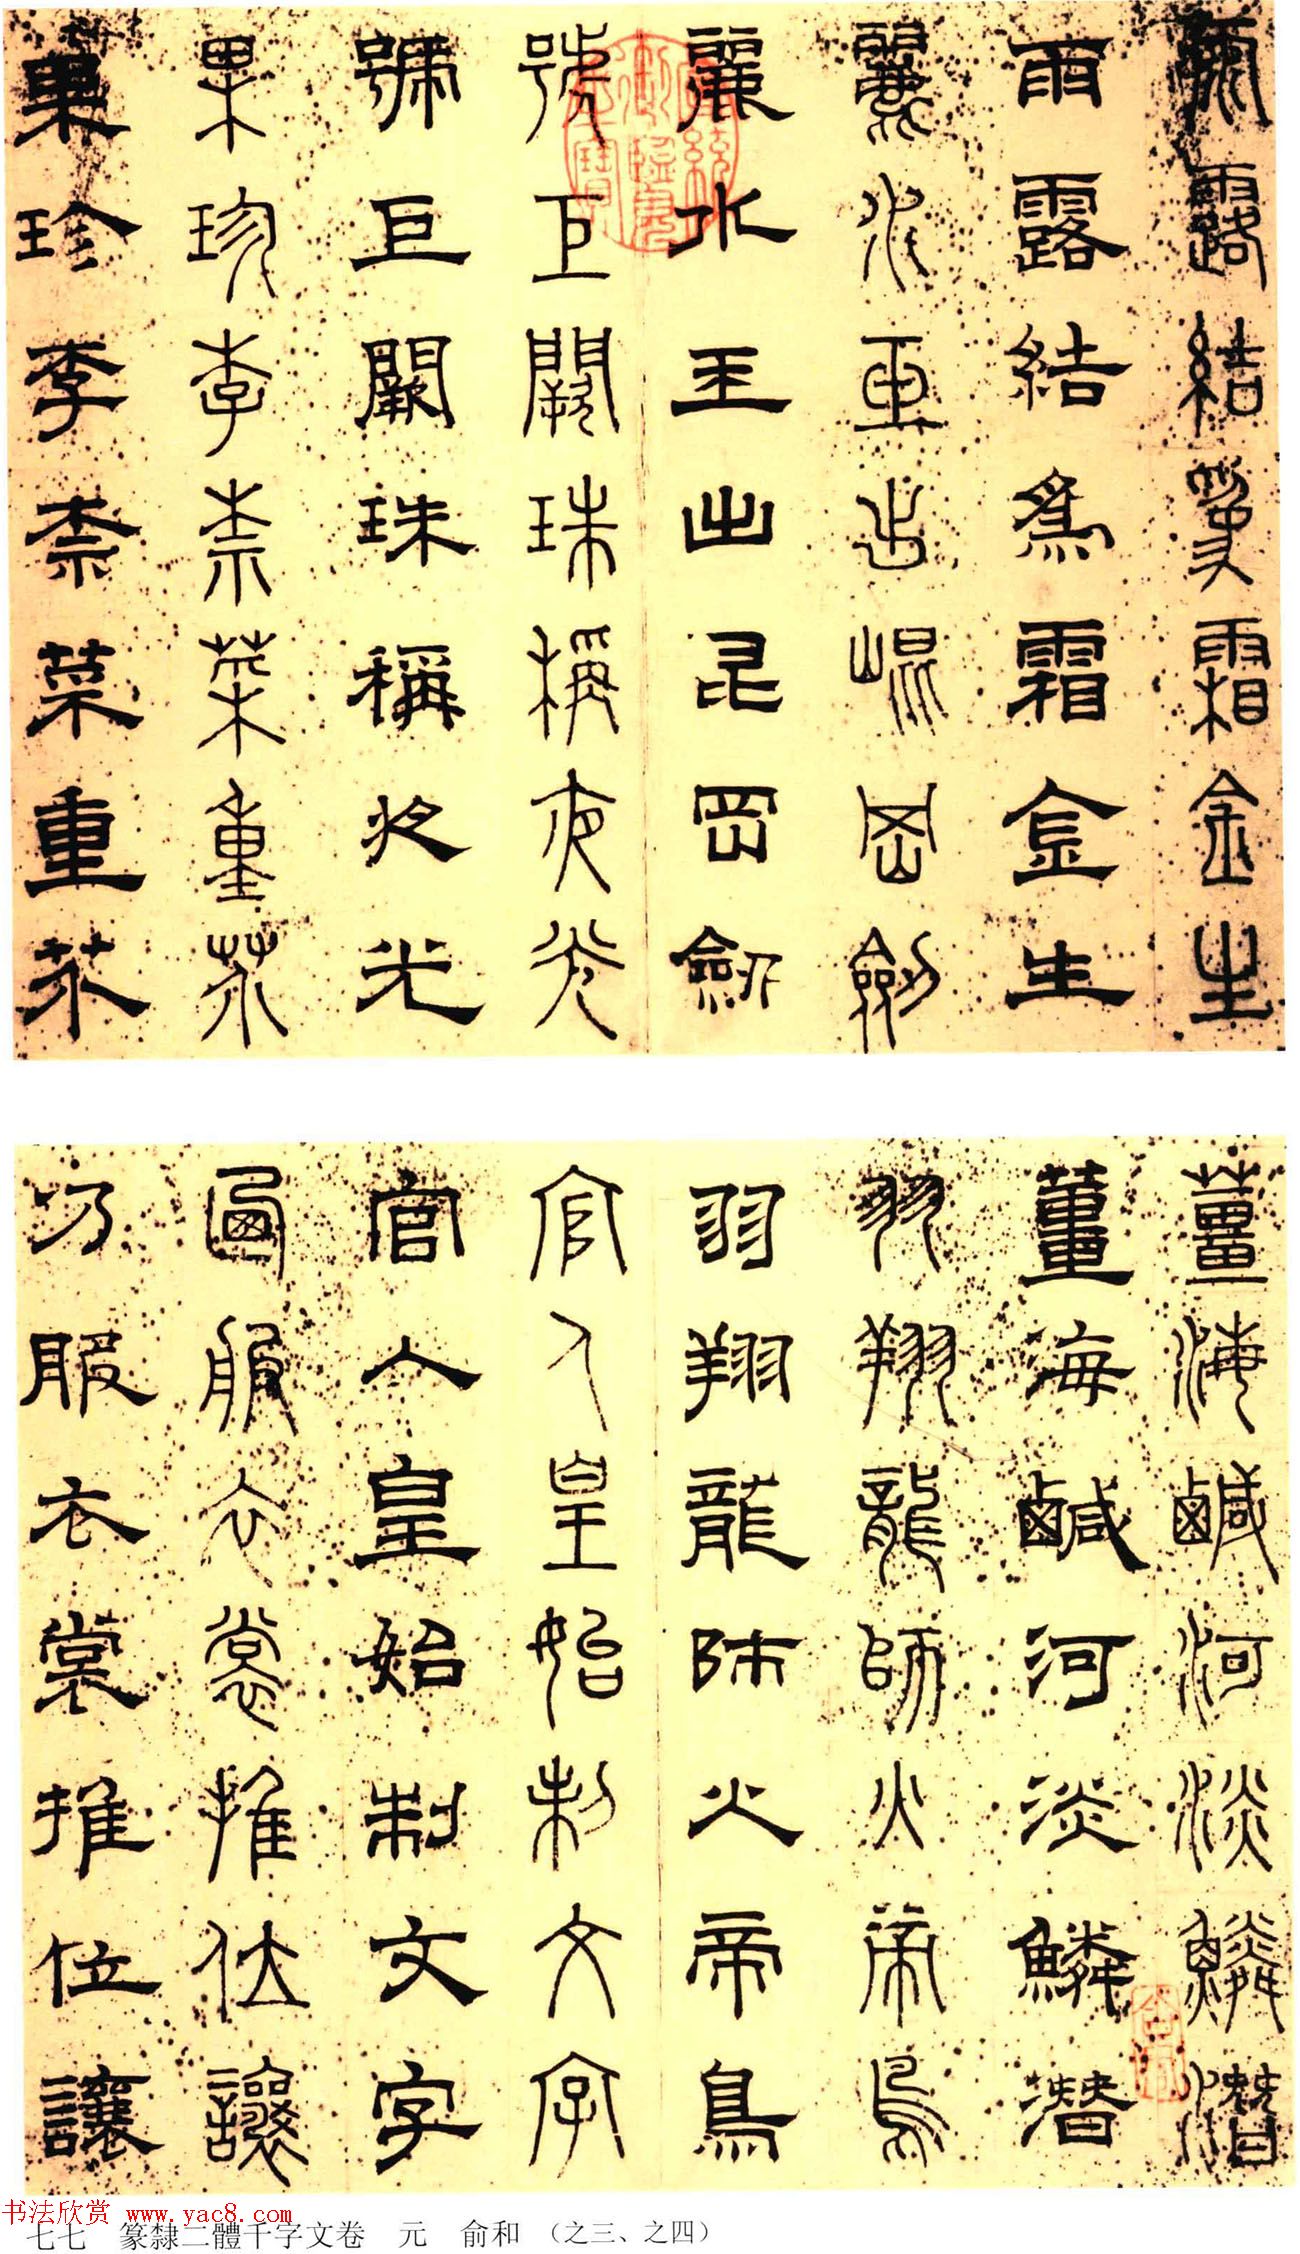 雨露結爲霜金生
雨露結爲霜金生
麗水玉出崐岡劍
麗水玉出昆岡劍
號巨闕珠稱夜光
號巨闕珠稱夜光
果珍李柰菜重芥
菓珍李柰菜重芥
薑海鹹河淡鱗潛
薑海鹹河淡鱗潛
羽翔龍師火帝鳥
羽翔龍師火帝鳥
官人皇始制文字
官人皇始制文字
乃服衣裳推位讓
乃服衣裳推位讓
书法欣赏 www.yac8.com
七七 篆隸二體千字文卷 元 俞和 （之三、之四）